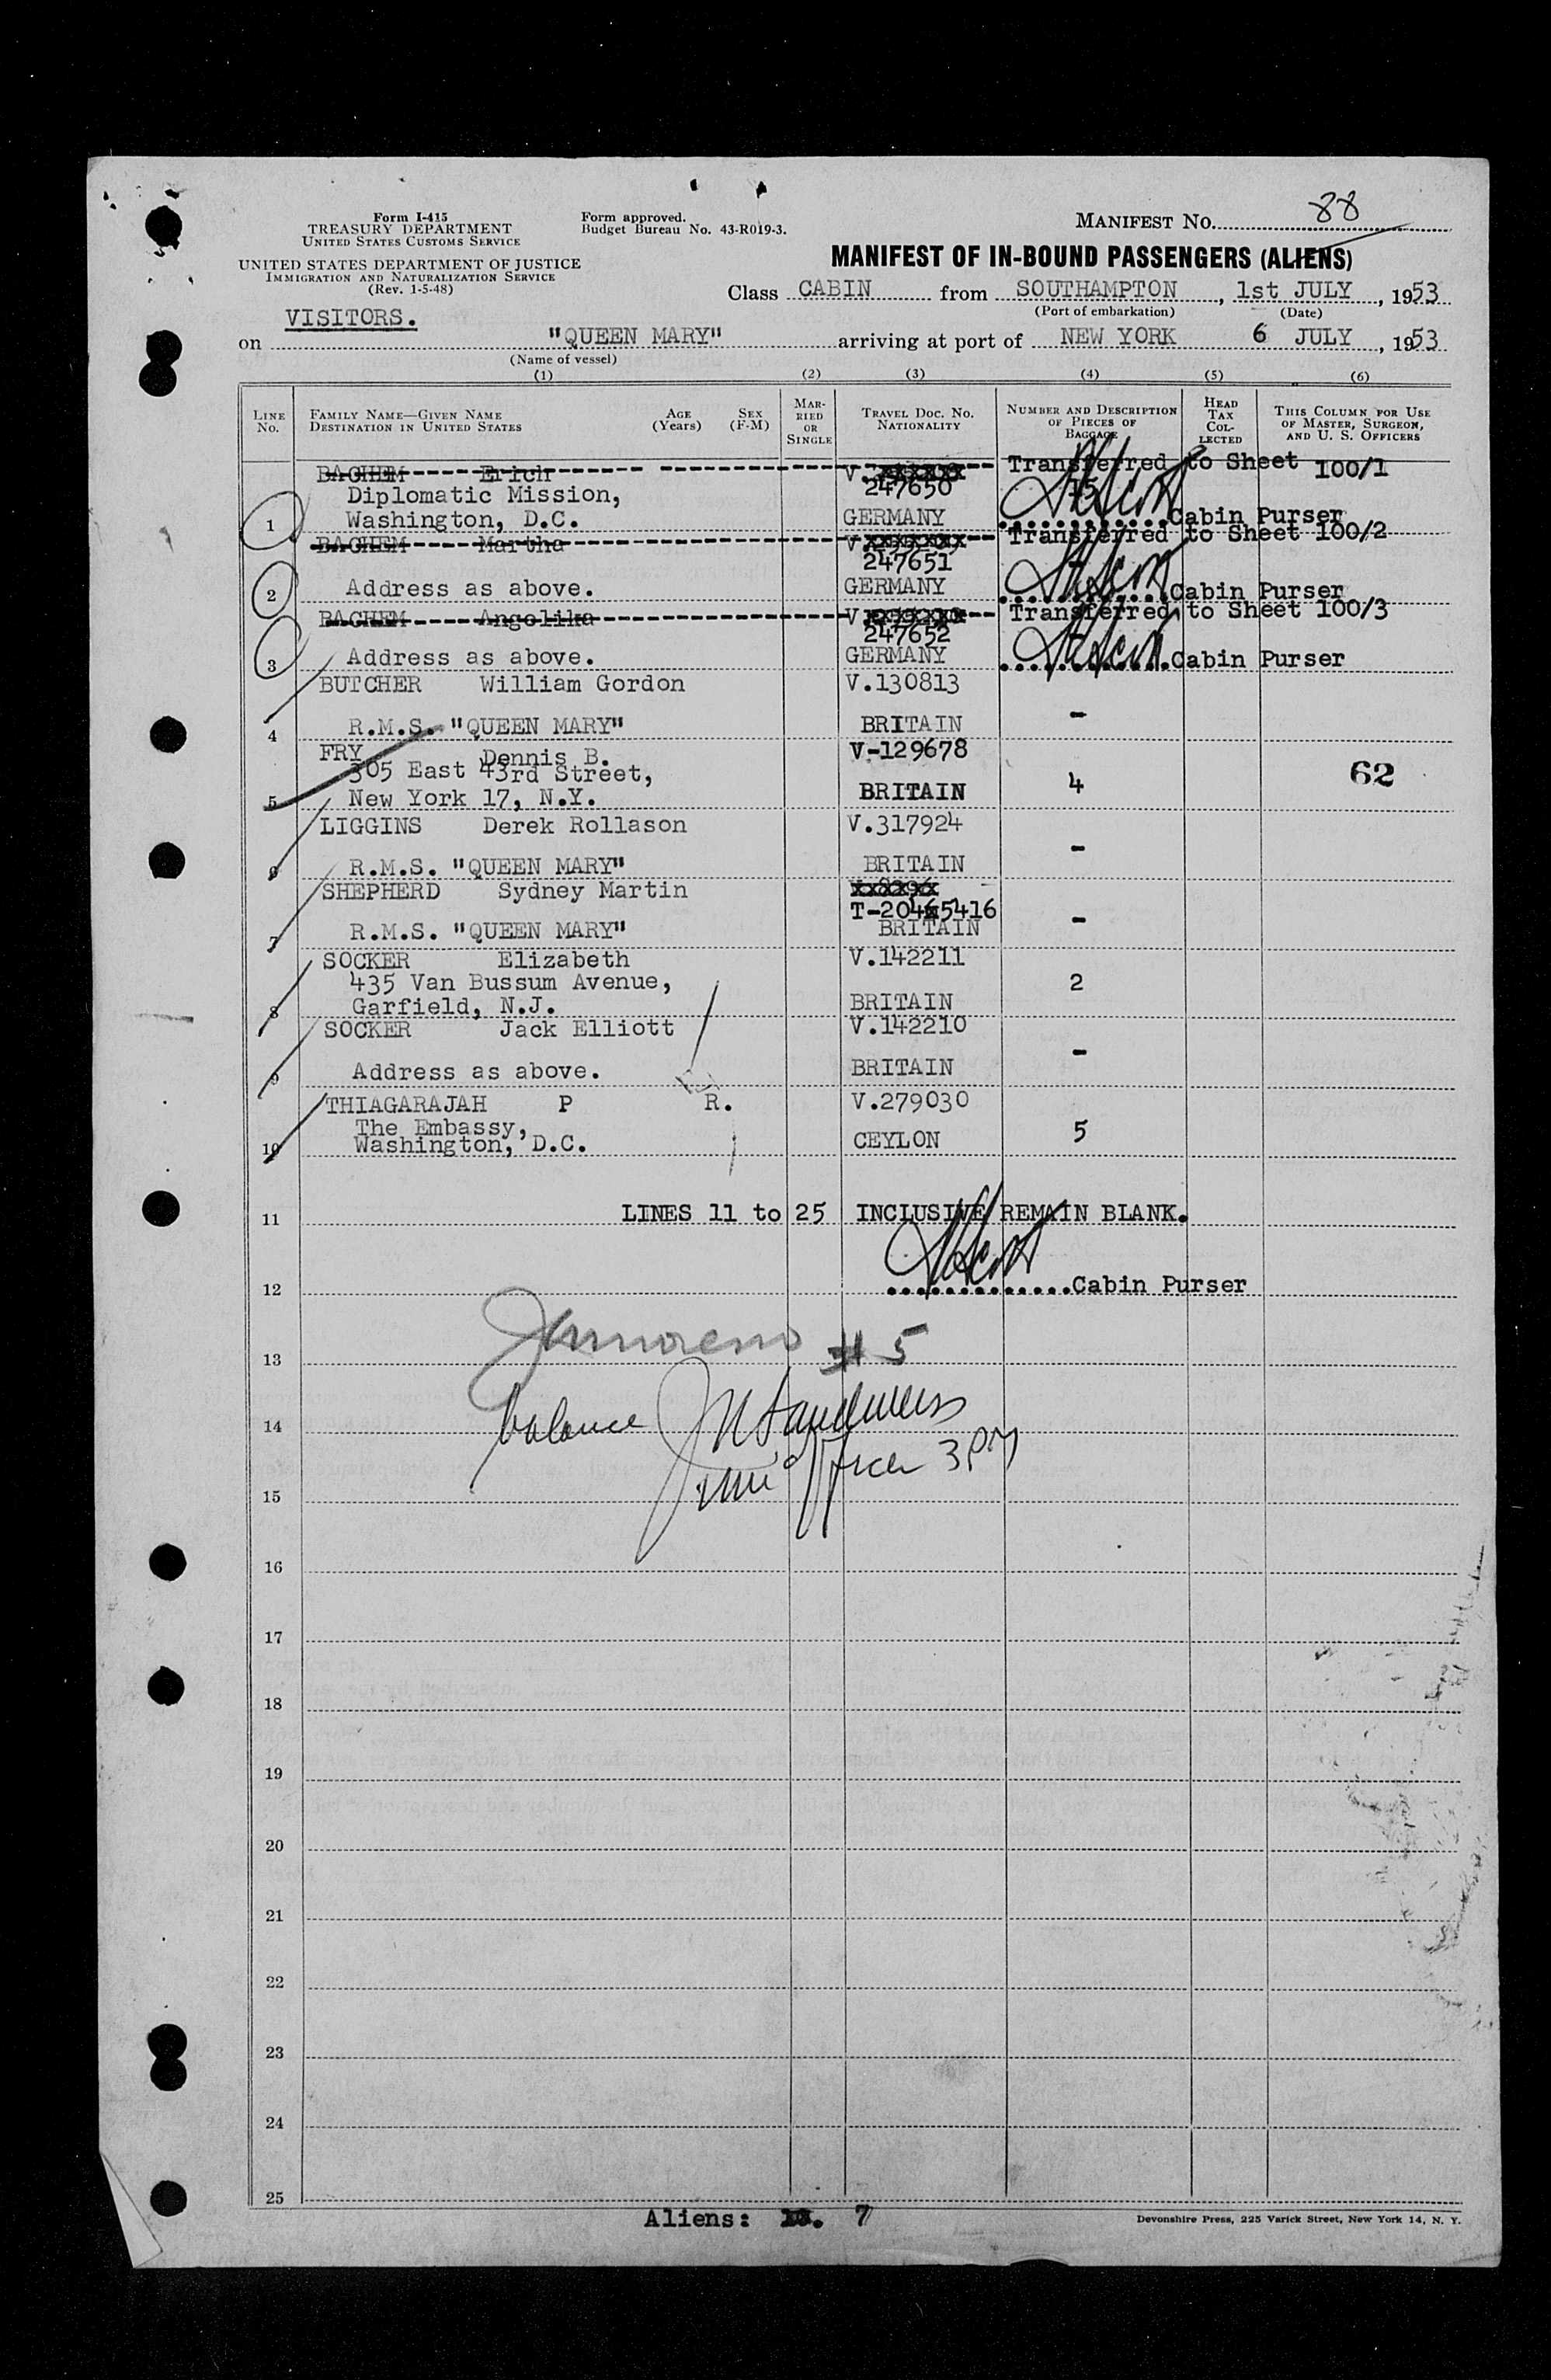 Form I-415
TREASURY DEPARTMENT
UNITED STATES CUSTOMS SERVICE
UNITED STATES DEPARTMENT OF JUSTICE
IMMIGRATION AND NATURALIZATION SERVICE
(Rev. 1-5-48)
Form approved.
Budget Bureau No. 43-R019-3.
MANIFEST NO. 88
MANIFEST OF IN-BOUND PASSENGERS (ALIENS)
Class CABIN from SOUTHAMPTON, 1st JULY, 1953
(Port of embarkation) (Date)
VISITORS.
on "QUEEN MARY" arriving at port of NEW YORK 6 JULY, 1953
(Name of vessel)
(1) (2) (3) (4) (5) (6)
LINE No. FAMILY NAME—GIVEN NAME DESTINATION IN UNITED STATES AGE (Years) SEX (F-M) MARRIED OR SINGLE TRAVEL DOC. NO. NATIONALITY NUMBER AND DESCRIPTION OF PIECES OF BAGGAGE HEAD TAX COLLECTED THIS COLUMN FOR USE OF MASTER, SURGEON, AND U. S. OFFICERS
BACHEM Erich V. Transferred to Sheet 100/1
Diplomatic Mission, 247650 15
1 Washington, D.C. GERMANY Cabin Purser
BACHEM Martha V Transferred to Sheet 100/2
247651
2 Address as above. GERMANY Cabin Purser
BACHEM Angelika V Transferred to Sheet 100/3
247652
3 Address as above. GERMANY Cabin Purser
BUTCHER William Gordon V.130813
4 R.M.S. "QUEEN MARY" BRITAIN -
FRY Dennis B. V-129678
305 East 43rd Street, 62
5 New York 17, N.Y. BRITAIN 4
LIGGINS Derek Rollason V.317924
6 R.M.S. "QUEEN MARY" BRITAIN -
SHEPHERD Sydney Martin
T-20465416
7 R.M.S. "QUEEN MARY" BRITAIN -
SOCKER Elizabeth V.142211
435 Van Bussum Avenue, 2
8 Garfield, N.J. BRITAIN
SOCKER Jack Elliott V.142210
9 Address as above. BRITAIN -
THIAGARAJAH P R. V.279030
The Embassy, 5
10 Washington, D.C. CEYLON
11 LINES 11 to 25 INCLUSIVE REMAIN BLANK.
12 Cabin Purser
13 # 5
14 balance
15 Officer 3PM
16
17
18
19
20
21
22
23
24
25
Aliens: 7
Devonshire Press, 225 Varick Street, New York 14, N. Y.